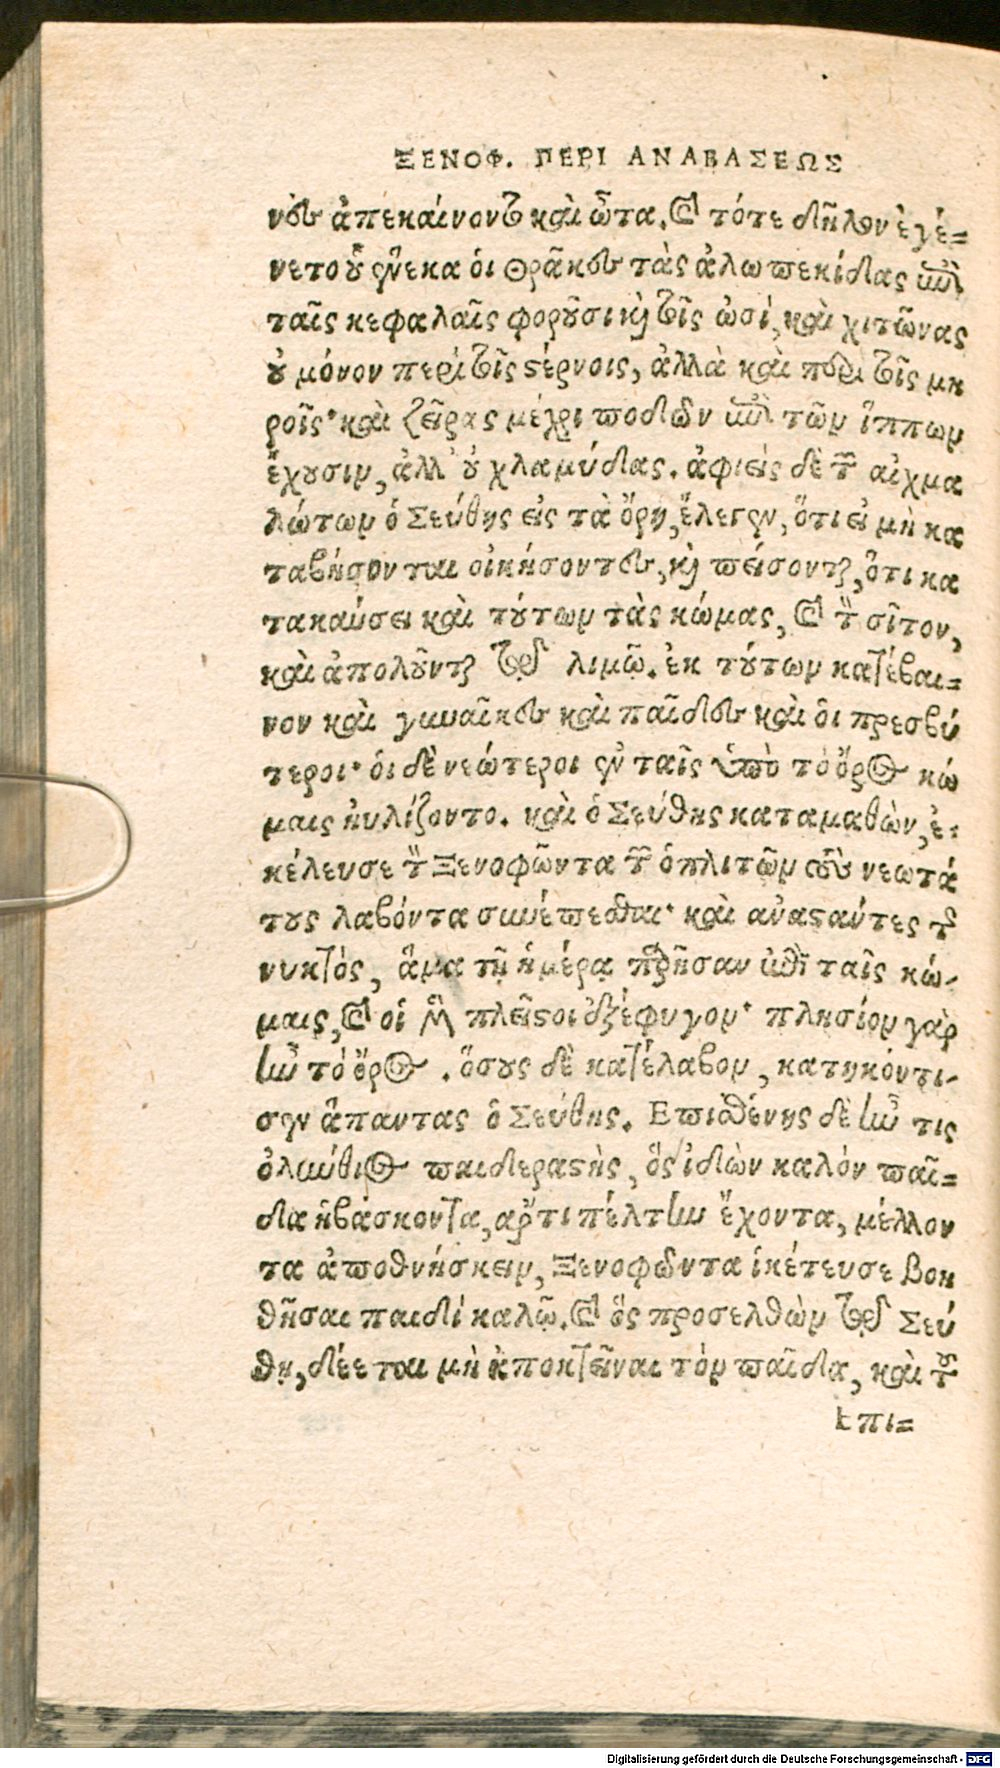 ΞΕΝΟΦ. ΠΕΡΙ ΑΝΑΒΑΣΕΩΣ
νες ἀπεκαίνοντο καὶ ὦτα. καὶ τότε δῆλον ἐγέ=
νετο οὗ ἕνεκα ὁι Θρᾶκες τὰς ἀλωπεκίδας ἐπὶ
ταῖς κεφαλαῖς φοροῦσι καὶ τοῖς ὠσί, καὶ χιτῶνας
οὐ μόνον περὶ τοῖς στέρνοις, ἀλλὰ καὶ περὶ τοῖς μη
ροῖς· καὶ ζειρας μέχρι ποδῶν ἐπὶ τῶν ἵππων
ἔχουσιν, ἀλλ' οὐ χλαμύδας. ἀφιεὶς δὲ τῶν αἰχμα
λώτων ὁ Σεύθης εἰς τὰ ὄρη, ἔλεγεν, ὅτι εἰ μὴ κα
ταβήσονται οἰκήσοντες, καὶ πείσονται, ὅτι κα
τακαύσει καὶ τούτων τὰς κώμας, καὶ τὸν σῖτον,
καὶ ἀπολοῦνται τῷ λιμῷ. ἐκ τούτων κατέβαι=
νον καὶ γυναῖκες καὶ παῖδες καὶ ὁι πρεσβύ
τεροι· ὁι δὲ νεώτεροι ἐν ταῖς ὑπὸ τὸ ὄρος κώ
μαις ηὐλίζοντο. καὶ ὁ Σεύθης καταμαθὼν, ἐ=
κέλευσε τὸν Ξενοφῶντα τῶν ὁπλιτῶν τοὺς νεωτά
τους λαβόντα συνέπεσθαι· καὶ ἀναστάντες τῆς
νυκτὸς, ἅμα τῇ ἡμέρᾳ παρῆσαν ἐπὶ ταῖς κώ-
μαις, καὶ οἱ μὲν πλεῖστοι ἐξέφυγον· πλησίον γὰρ
ἦν τὸ ὄρος. ὅσους δὲ κατέλαβον, κατηκόντι-
σεν ἅπαντας ὁ Σεύθης. Επισθένης δὲ ἦν τις
ὀλύνθιος παιδεραστὴς, ὃς ἰδὼν καλὸν παῖ=
δα ἡβάσκοντα, ἄρτι πέλτην ἔχοντα, μέλλον
τα ἀποθνήσκειν, Ξενοφῶντα ἱκέτευσε βοη
θῆσαι παιδὶ καλῷ. καὶ ὃς προσελθὼν τῷ Σεύ
θῃ, δέεται μὴ ἀποκτεῖναι τὸν παῖδα, καὶ τοῦ
Επι=
Digitalisierung gefördert durch die Deutsche Forschungsgemeinschaft - DFG